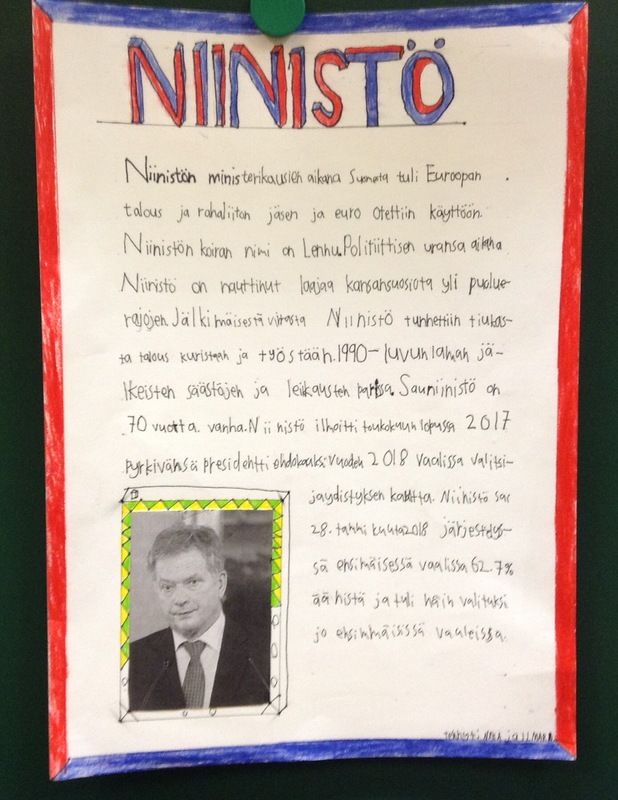 NIINISTÖ
Niinistön ministerikausien aikana Suomata tuli Euroopan
talous ja rahaliiton jäsen ja euro otettiin käyttöön.
Niinistön koiran nimi on Lennu. Poliittisen uransa aikana
Niinistö on nauttinut laajaa kansansuosiota yli puolue-
rajojen. Jälkimäisestä virasta Niinistö tunnettiin tiukas-
ta talous kuristaan ja työstään. 1990-luvun laman jä-
lkeisten säästöjen ja leikausten parissa. Sauniinistö on
70 vuotta. vanha. Niinistö ilmoitti toukokuun lopussa 2017
pyrkivänsä presidentti ehdokaaksi vuoden 2018 vaalissa valitsi-
jayhdistyksen kautta. Niinistö sai
28. tammikuuta 2018 järjestetys-
sä ensimäisessä vaalissa 62.7%
äänistä ja tuli näin valituksi
jo ensimmäisissä vaaleissa.
ja ILMARI